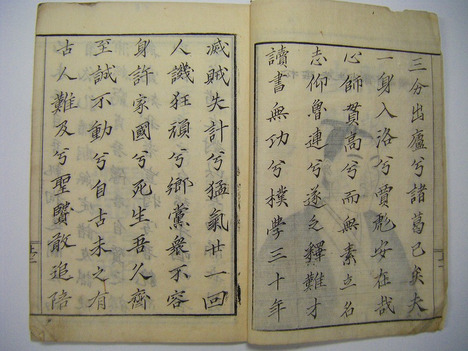 三分出廬兮諸葛已矣夫
一身入洛兮賈彪安在哉
心師貫高兮而無素立名
志仰魯連兮遂乏釋難才
讀書無功兮樸學三十年
滅賊失計兮猛氣廿一回
人譏狂頑兮鄉黨衆不容
身許家國兮死生吾久齊
至誠不動兮自古未之有
古人難及兮聖賢敢追陪